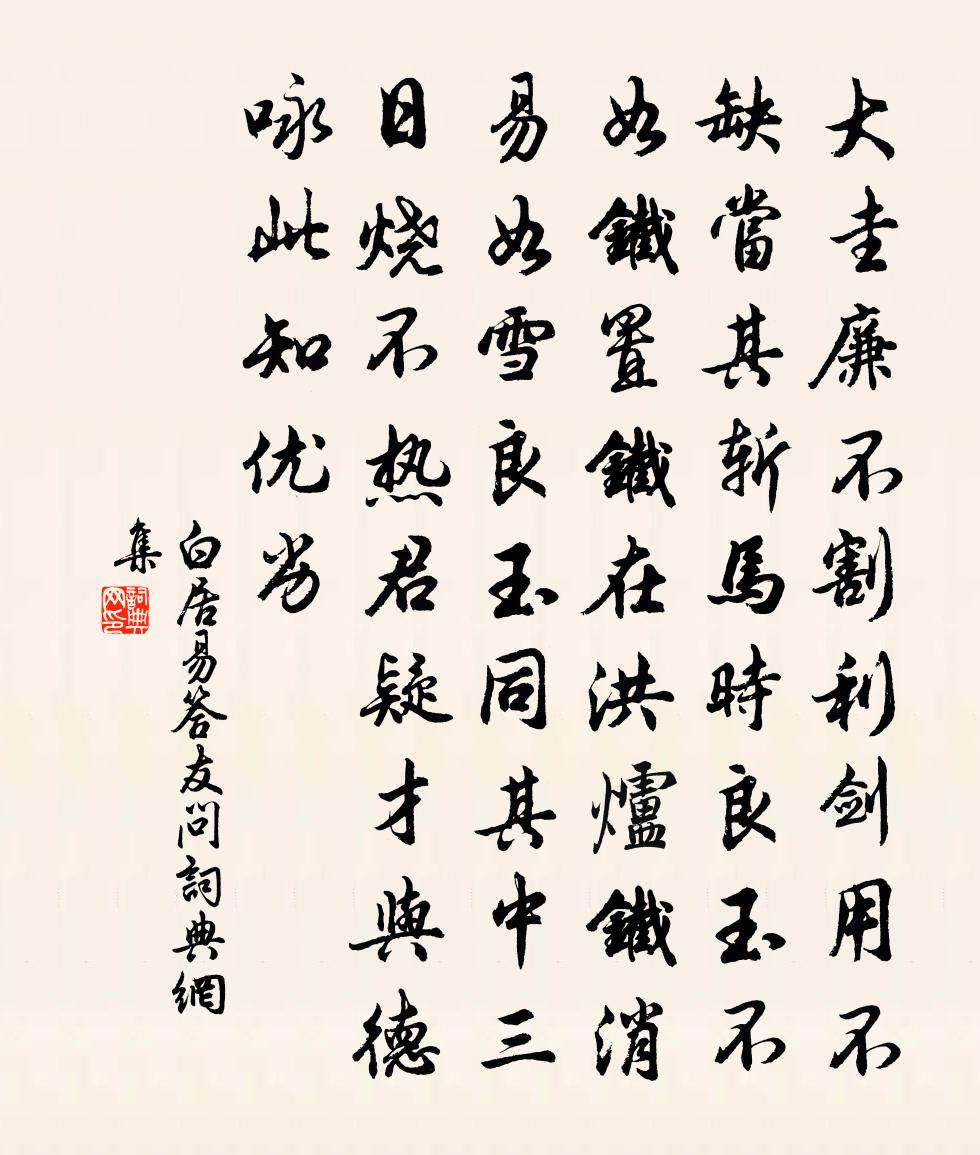 大圭廉不割利剑用不
缺當其斩馬時良玉不
如鐵置鐵在洪爐鐵消
易如雪良玉同其中三
日烧不热君疑才與德
咏此知优劣
白居易答友問詞典網
集
詞典
网印